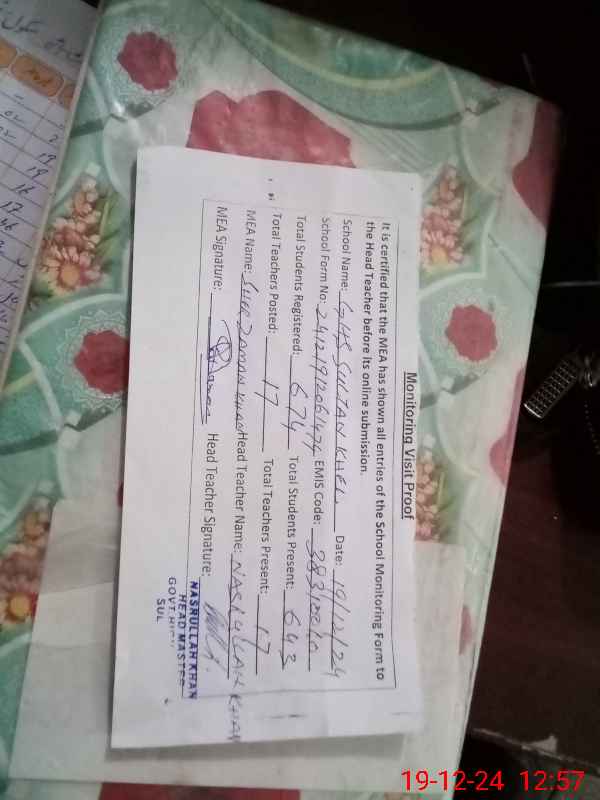 Monitoring Visit Proof
It is certified that the MEA has shown all entries of the School Monitoring Form to
the Head Teacher before its online submission.
School Name: GHS SULTAN KHEL Date: 19/12/24
School Form No: EMIS Code:
Total Students Registered: 674 Total Students Present: 643
Total Teachers Posted: 17 Total Teachers Present: 17
MEA Name: SHER ZAMAN KHAN Head Teacher Name: NASRULLAH KHAN
MEA Signature: Head Teacher Signature:
NASRULLAH KHAN
HEAD MASTER
GOVT HIGH
SUL
19-12-24 12:57